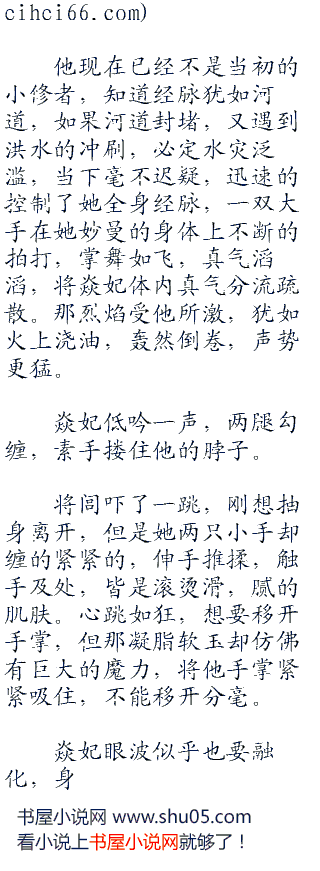 cihci66.com)
他现在已经不是当初的
小修者，知道经脉犹如河
道，如果河道封堵，又遇到
洪水的冲刷，必定水灾泛
滥，当下毫不迟疑，迅速的
控制了她全身经脉，一双大
手在她妙曼的身体上不断的
拍打，掌舞如飞，真气滔
滔，将焱妃体内真气分流疏
散。那烈焰受他所激，犹如
火上浇油，轰然倒卷，声势
更猛。
焱妃低吟一声，两腿勾
缠，素手搂住他的脖子。
将闾吓了一跳，刚想抽
身离开，但是她两只小手却
缠的紧紧的，伸手推揉，触
手及处，皆是滚烫滑，腻的
肌肤。心跳如狂，想要移开
手掌，但那凝脂软玉却仿佛
有巨大的魔力，将他手掌紧
紧吸住，不能移开分毫。
焱妃眼波似乎也要融
化，身
书屋小说网 www.shu05.com
看小说上书屋小说网就够了！